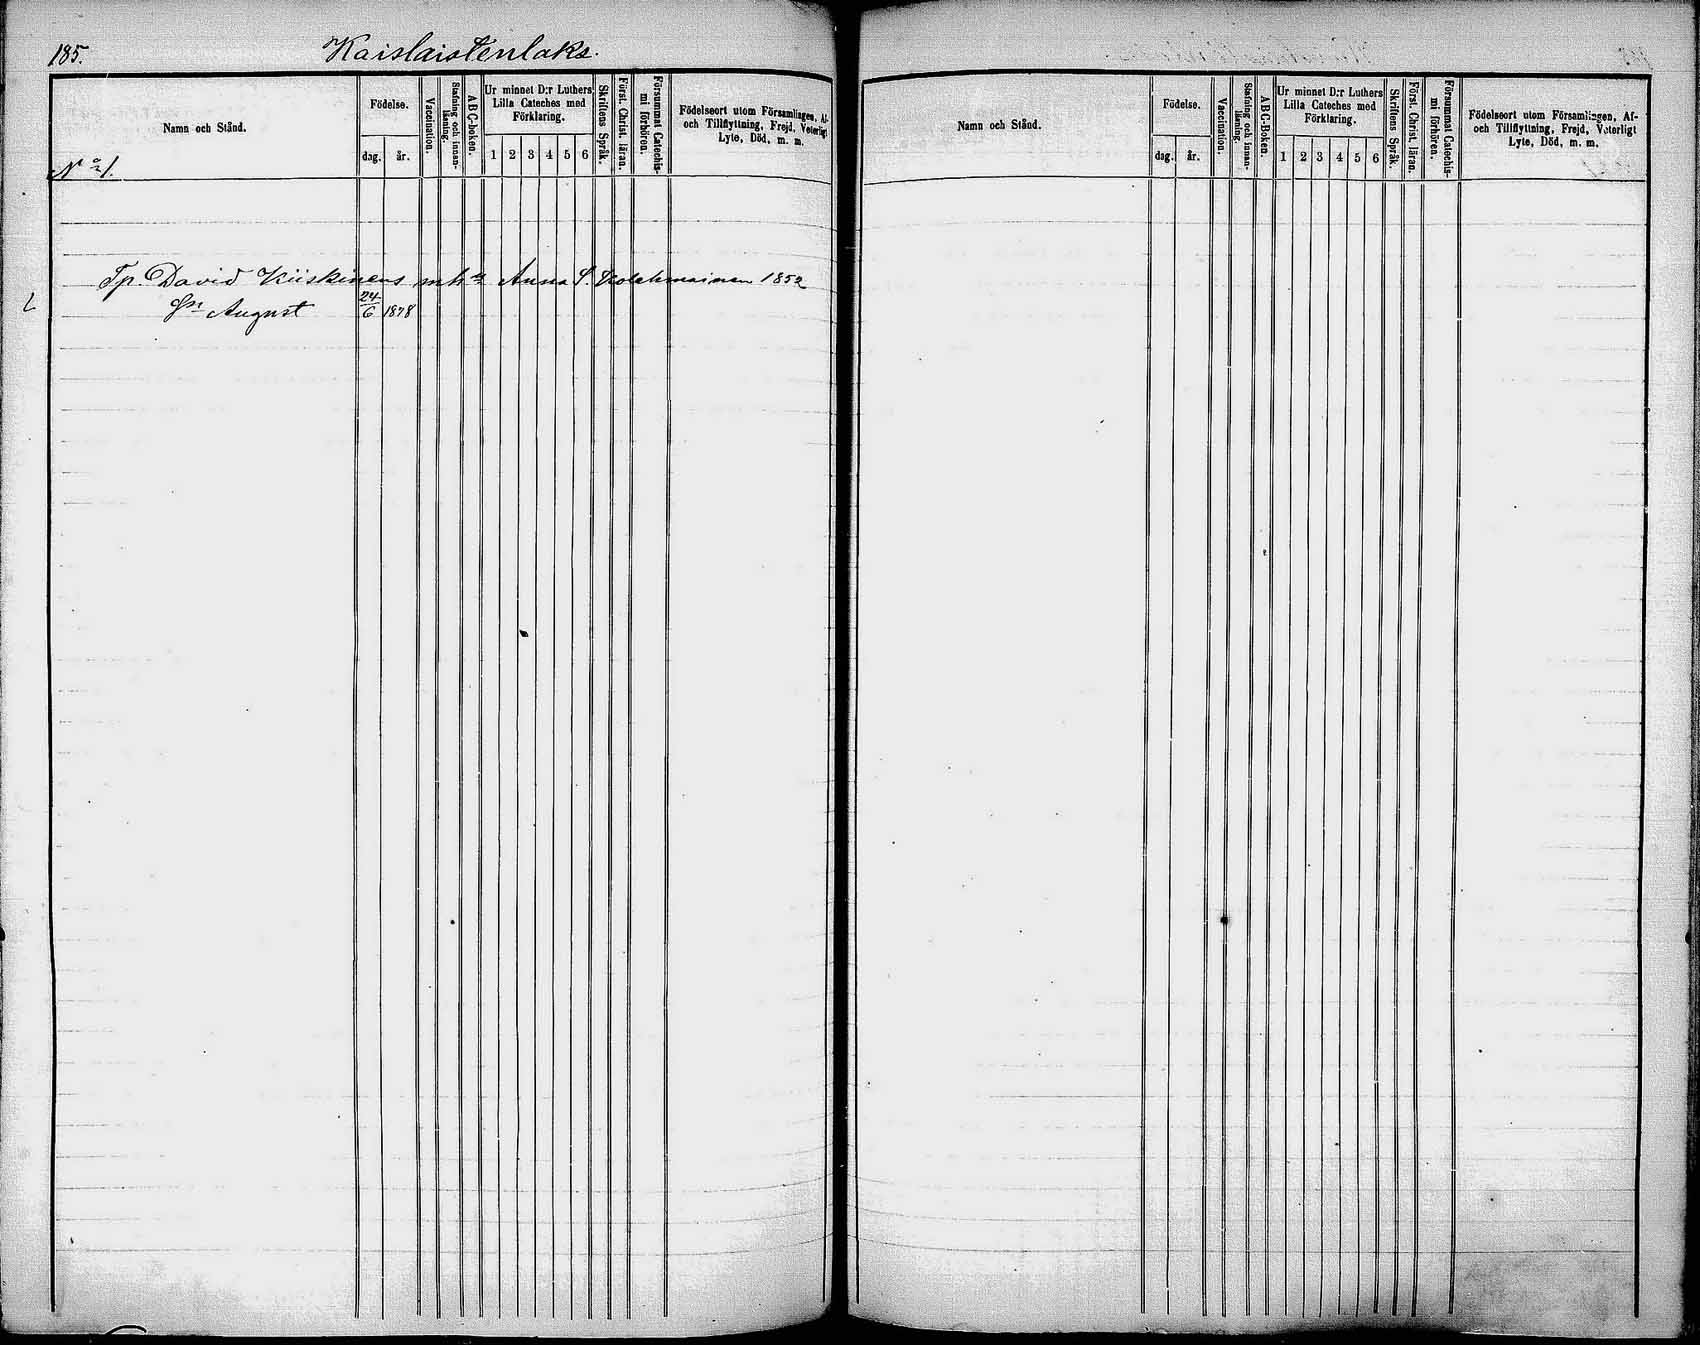 185.
Kaislaistenlaks.
Namn och Stånd.
Födelse.
dag.
år.
Vaccination.
Stafning och innan-
läsning.
ABC-boken.
Ur minnet D:r Luthers
Lilla Cateches med
Förklaring.
1 2 3 4 5 6
Skriftens Språk.
Först. Christ. läran.
Försummat Catechis-
mi förhören.
Födelseort utom Församlingen, Af-
och Tillflyttning, Frejd, Veterligt
Lyte, Död, m. m.
No 1.
Tp. David Kiiskinens mh Anna S. Kolehmainen 1852
Sn August 24/6 1878
Namn och Stånd.
Födelse.
dag.
år.
Vaccination.
Stafning och innan-
läsning.
ABC-Boken.
Ur minnet D:r Luthers
Lilla Cateches med
Förklaring.
1 2 3 4 5 6
Skriftens Språk.
Först. Christ. läran.
Försummat Catechis-
mi förhören.
Födelseort utom Församlingen, Af-
och Tillflyttning, Frejd, Veterligt
Lyte, Död, m. m.